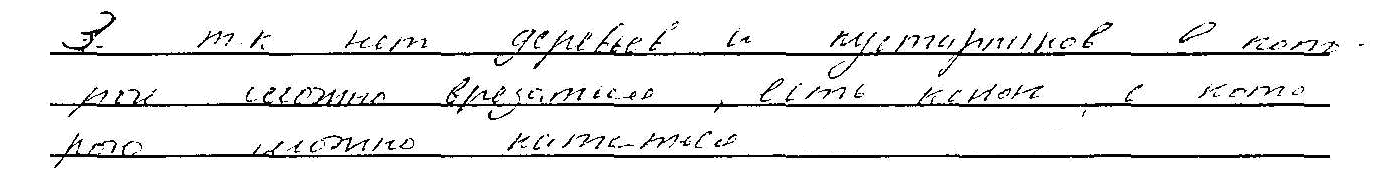 3. т.к нет деревьев и кустарников в кото-
рои можно врезаться, есть клон, с кото
рого можно кататься